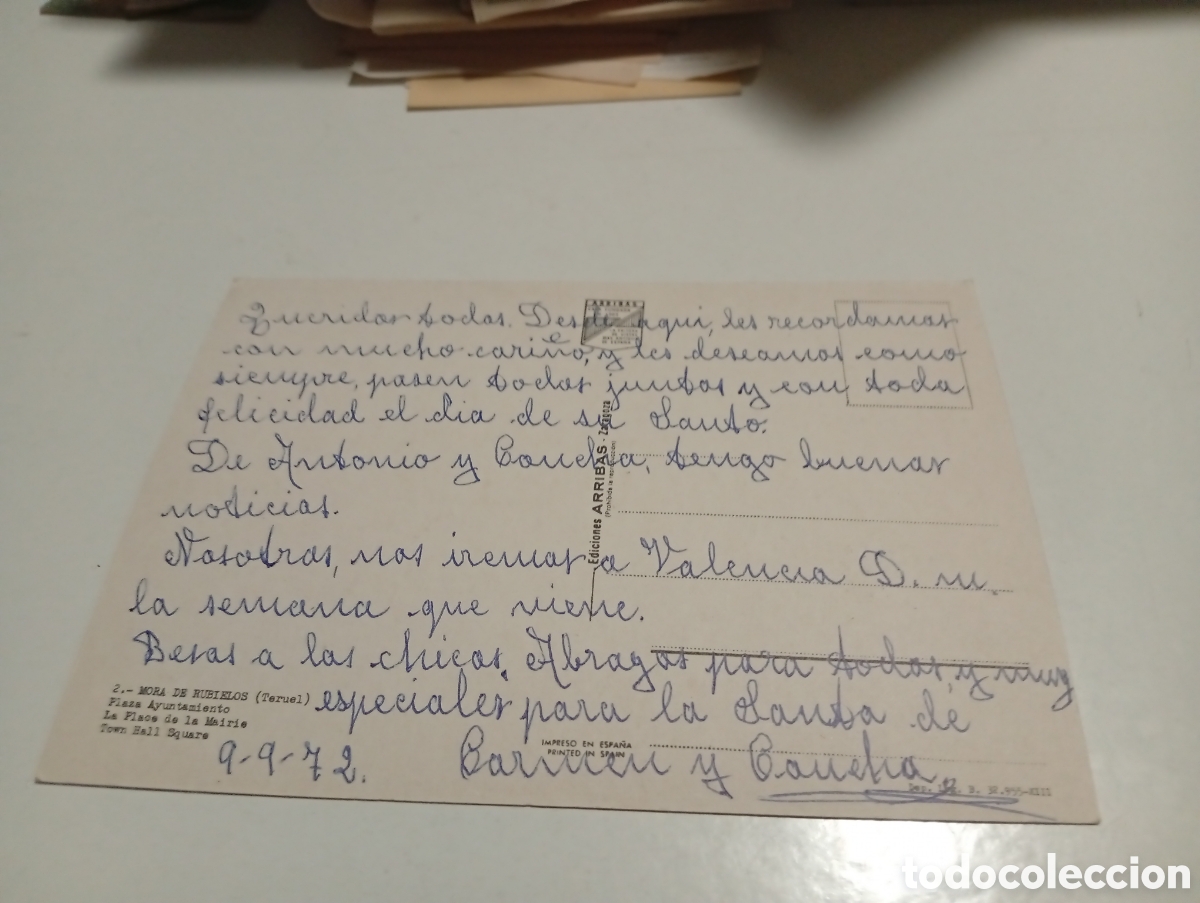 Queridos todos. Desde aqui, les recordamos
con mucho cariño, y les deseamos como
siempre, pasen todos juntos y con toda
felicidad el dia de su Santo.
De Antonio y Concha, tengo buenas
noticias.
Nosotros, nos iremos a Valencia D. m.
la semana que viene.
Besos a los chicos. Abrazos para todos, y muy
especiales para la Santa de
Carmen y Concha
9-9-72.
2.- MORA DE RUBIELOS (Teruel)
Plaza Ayuntamiento
La Place de la Mairie
Town Hall Square
ARRIBAS
Ediciones ARRIBAS - Zaragoza
(Prohibida la reproducción)
IMPRESO EN ESPAÑA
PRINTED IN SPAIN
Dep. Leg. B. 32.955-XIII
todocoleccion